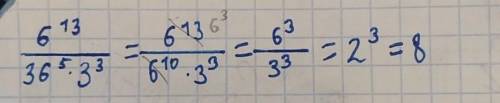 6¹³/(36⁵·3³) = 6¹³ 6³/(6¹⁰·3³) = 6³/3³ = 2³ = 8